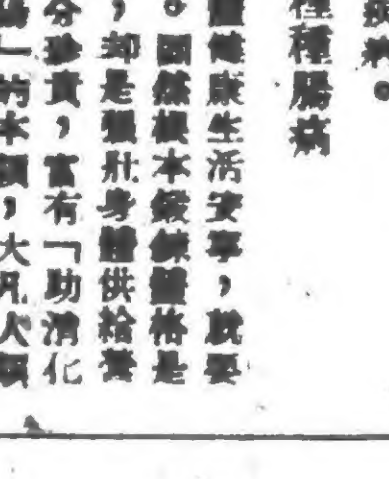 病。
種種腸病
健康生活安寧，就要
。固然根本鍛鍊體格是
，却是強壯身體供給養
分珍貴，富有「助消化
」的本領，大凡人類